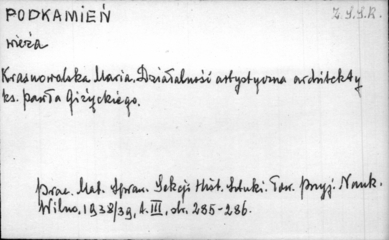 PODKAMIEŃ
Z.S.S.R.
wieża
Krasnowolska Maria. Działalność artystyczna architekty
ks. Pawła Giżyckiego.
Prac. Mat. Spraw. Sekcji Hist. Sztuki. Tow. Przyj. Nauk.
Wilno, 1938/39, t. III, str. 285-286.